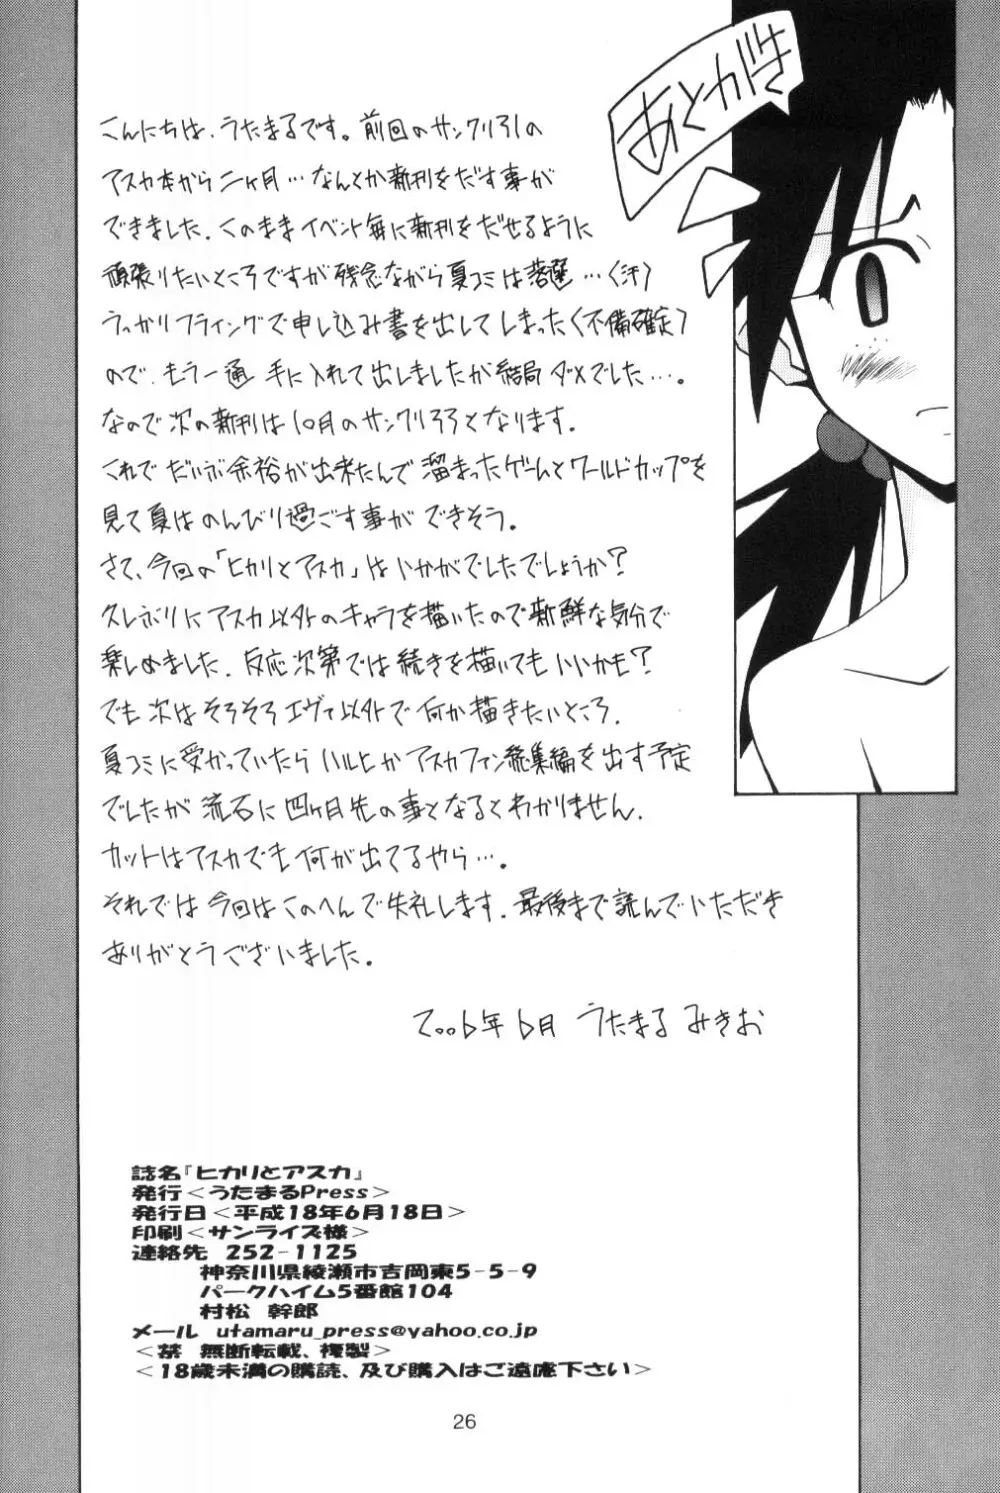 あとがき
こんにちは、うたまるです。前回のサンクリ31の
アスカ本から二ヶ月…なんとか新刊をだす事が
できました。このままイベント毎に新刊をだせるように
頑張りたいところですが残念ながら夏コミは落選…(汗)
うっかりフライングで申し込み書を出してしまった(不備確定)
ので、もう一通 手に入れて出しましたが結局ダメでした…。
なので次の新刊は10月のサンクリ33となります。
これでだいぶ余裕が出来たんで溜まったゲームとワールドカップを
見て夏はのんびり過ごす事ができそう。
さて、今回の「ヒカリとアスカ」はいかがでしたでしょうか?
久しぶりにアスカ以外のキャラを描いたので新鮮な気分で
楽しめました。反応次第では続きを描いてもいいかも?
でも次はそろそろエヴァ以外で何か描きたいところ。
夏コミに受かっていたらハルヒかアスカファン総集編を出す予定
でしたが流石に四ヶ月先の事となるとわかりません。
カットはアスカでも何が出てるやら…。
それでは今回はこのへんで失礼します。最後まで読んでいただき
ありがとうございました。
2006年6月 うたまる みきお
誌名『ヒカリとアスカ』
発行<うたまるPress>
発行日<平成18年6月18日>
印刷<サンライズ様>
連絡先 252-1125
神奈川県綾瀬市吉岡東5-5-9
パークハイム5番館104
村松 幹郎
メール utamaru_press@yahoo.co.jp
<禁 無断転載、複製>
<18歳未満の購読、及び購入はご遠慮下さい>
26